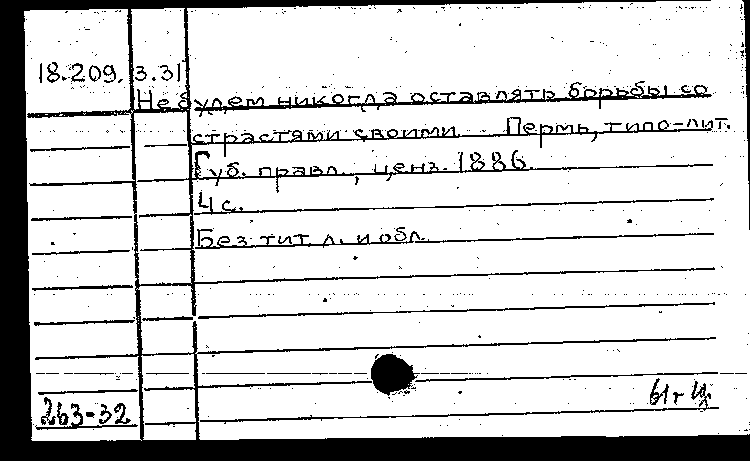 18.209. 3.31
Не будем никогда оставлять борьбы со
страстями своими Пермь, типо-лит.
Губ. правл., ценз. 1886.
4 с.
Без тит. л. и обл.
263-32